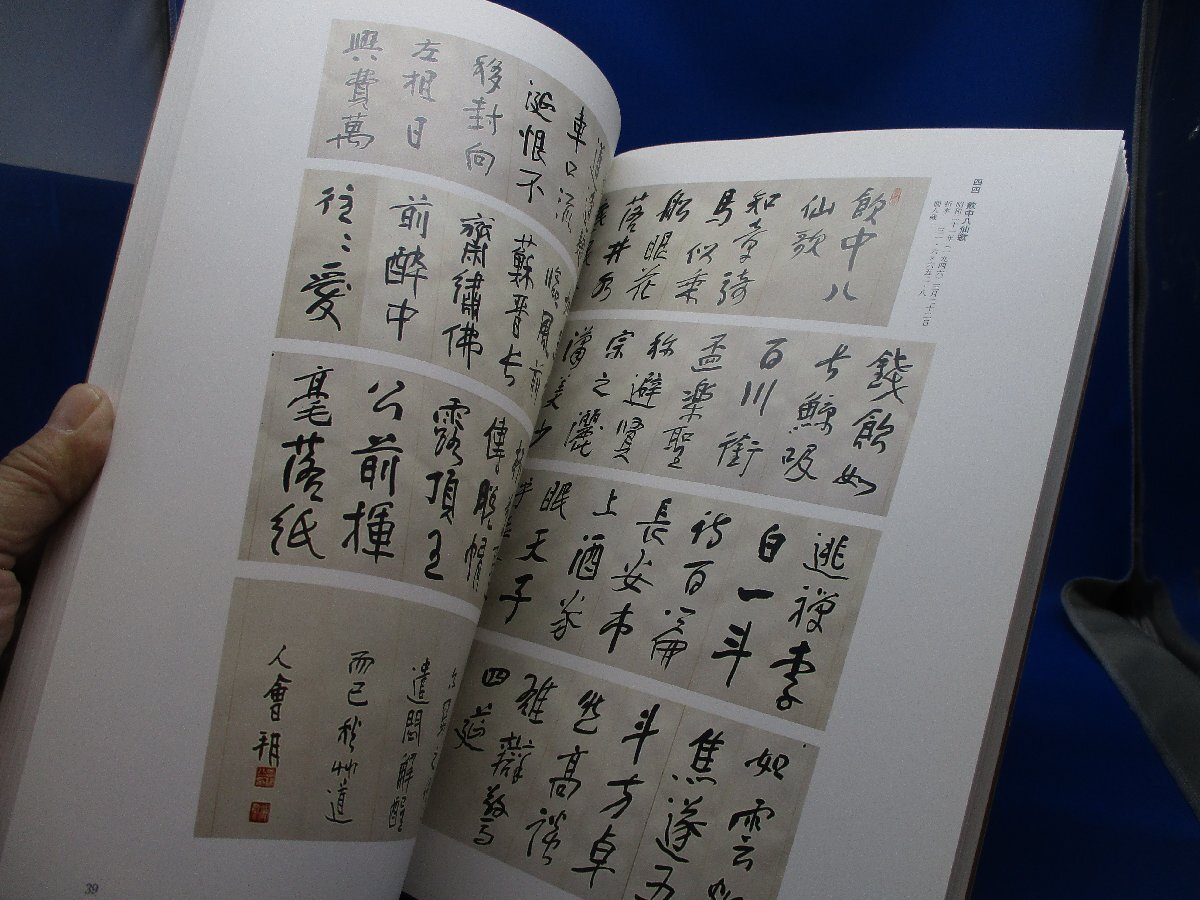 四四 飲中八仙歌
飲中八
仙歌
知章騎
馬似乘
船眼花
落井水
車口流
涎恨不
移封向
左相日
興費萬
錢飲如
長鯨吸
百川銜
盃樂聖
称避賢
宗之灑
瀟美少
臨風前
蘇晉長
齋繡佛
前醉中
往〻愛
逃禅李
白一斗
詩百篇
長安市
上酒家
眠天子
傳脱帽
露頂王
公前揮
毫落紙
如雲
焦遂五
斗方卓
然高談
雄辯驚
四筵
遣悶解酲
而已秋艸道
人會
39